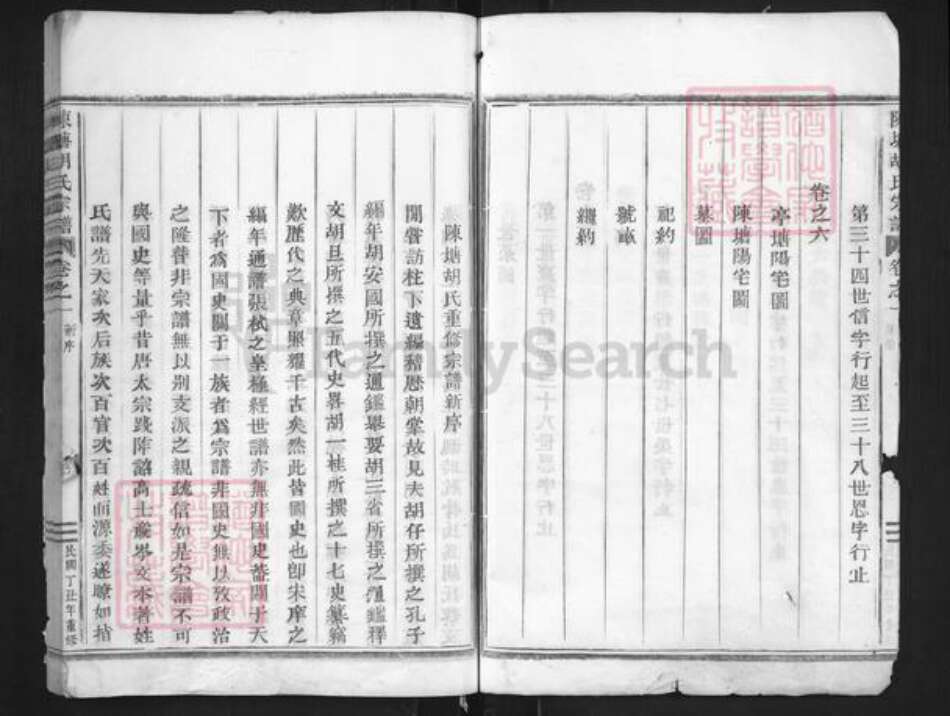 第三十四世信字行起至三十八世恩字行止
卷之六
亭塘陽宅圖
陳塘陽宅圖
墓圖
祀約
號畝
繼約
陳塘胡氏重修宗譜新序
聞嘗訪柱下遺編稽歷朝掌故見夫胡仔所撰之孔子
編年胡安國所撰之通鑑舉要胡三省所撰之通鑑釋
文胡旦所撰之五代史畧胡一桂所撰之十七史纂竊
歎歷代之典章照耀千古矣然此皆國史也卽宋庠之
編年通譜張栻之皇極經世譜亦無非國史蓋關于天
下者為國史關于一族者為宗譜非國史無以攷政治
之隆替非宗譜無以別支派之親疏信如是宗譜不可
與國史等量乎昔唐太宗踐阼詔高士廉岑文本著姓
氏譜先天家次后族次百官次百姓而源委遂瞭如指
陳塘胡氏宗譜 卷之一 新序 民國丁丑年重修
FamilySearch